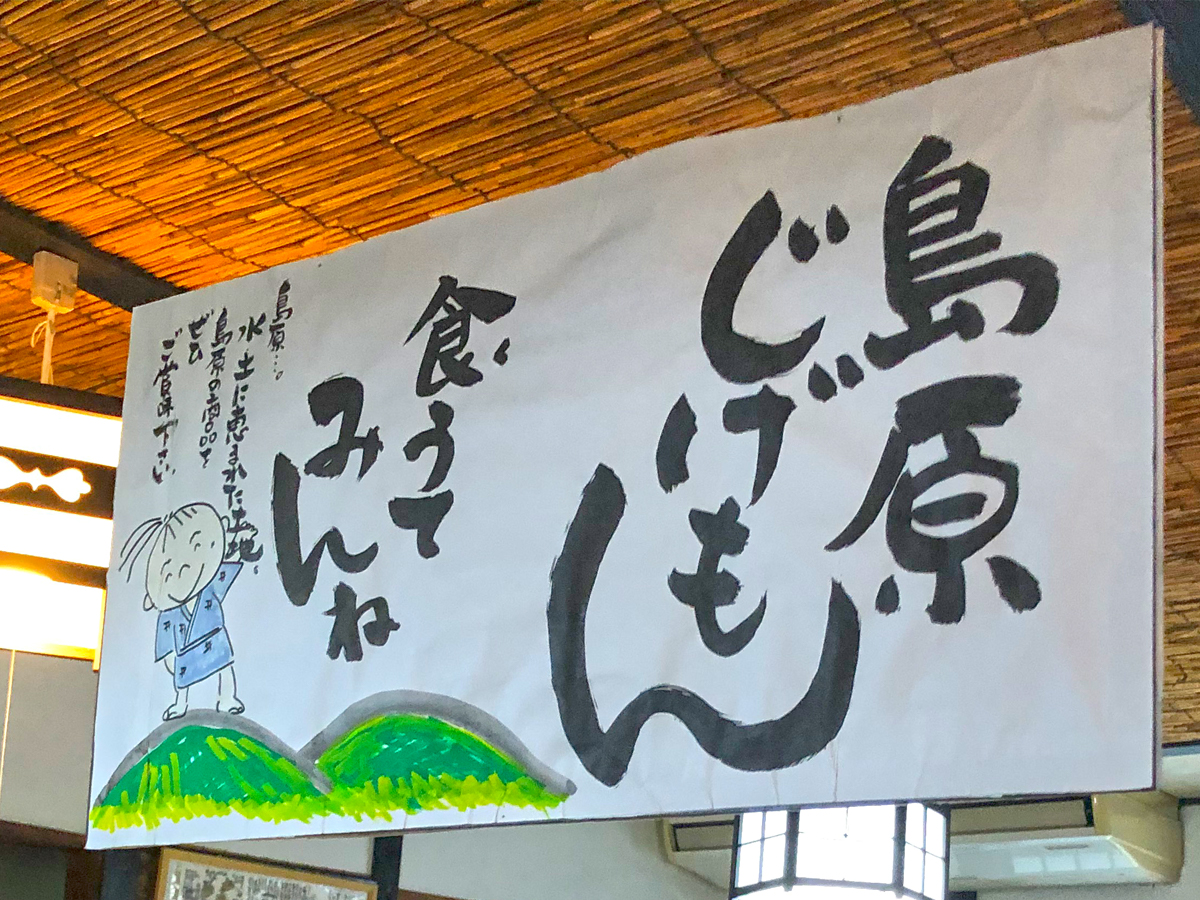 島原
じげもん
食うて
みんね
島原…。
水と土に恵まれた土地。
島原の商品を
ぜひ
ご賞味下さい